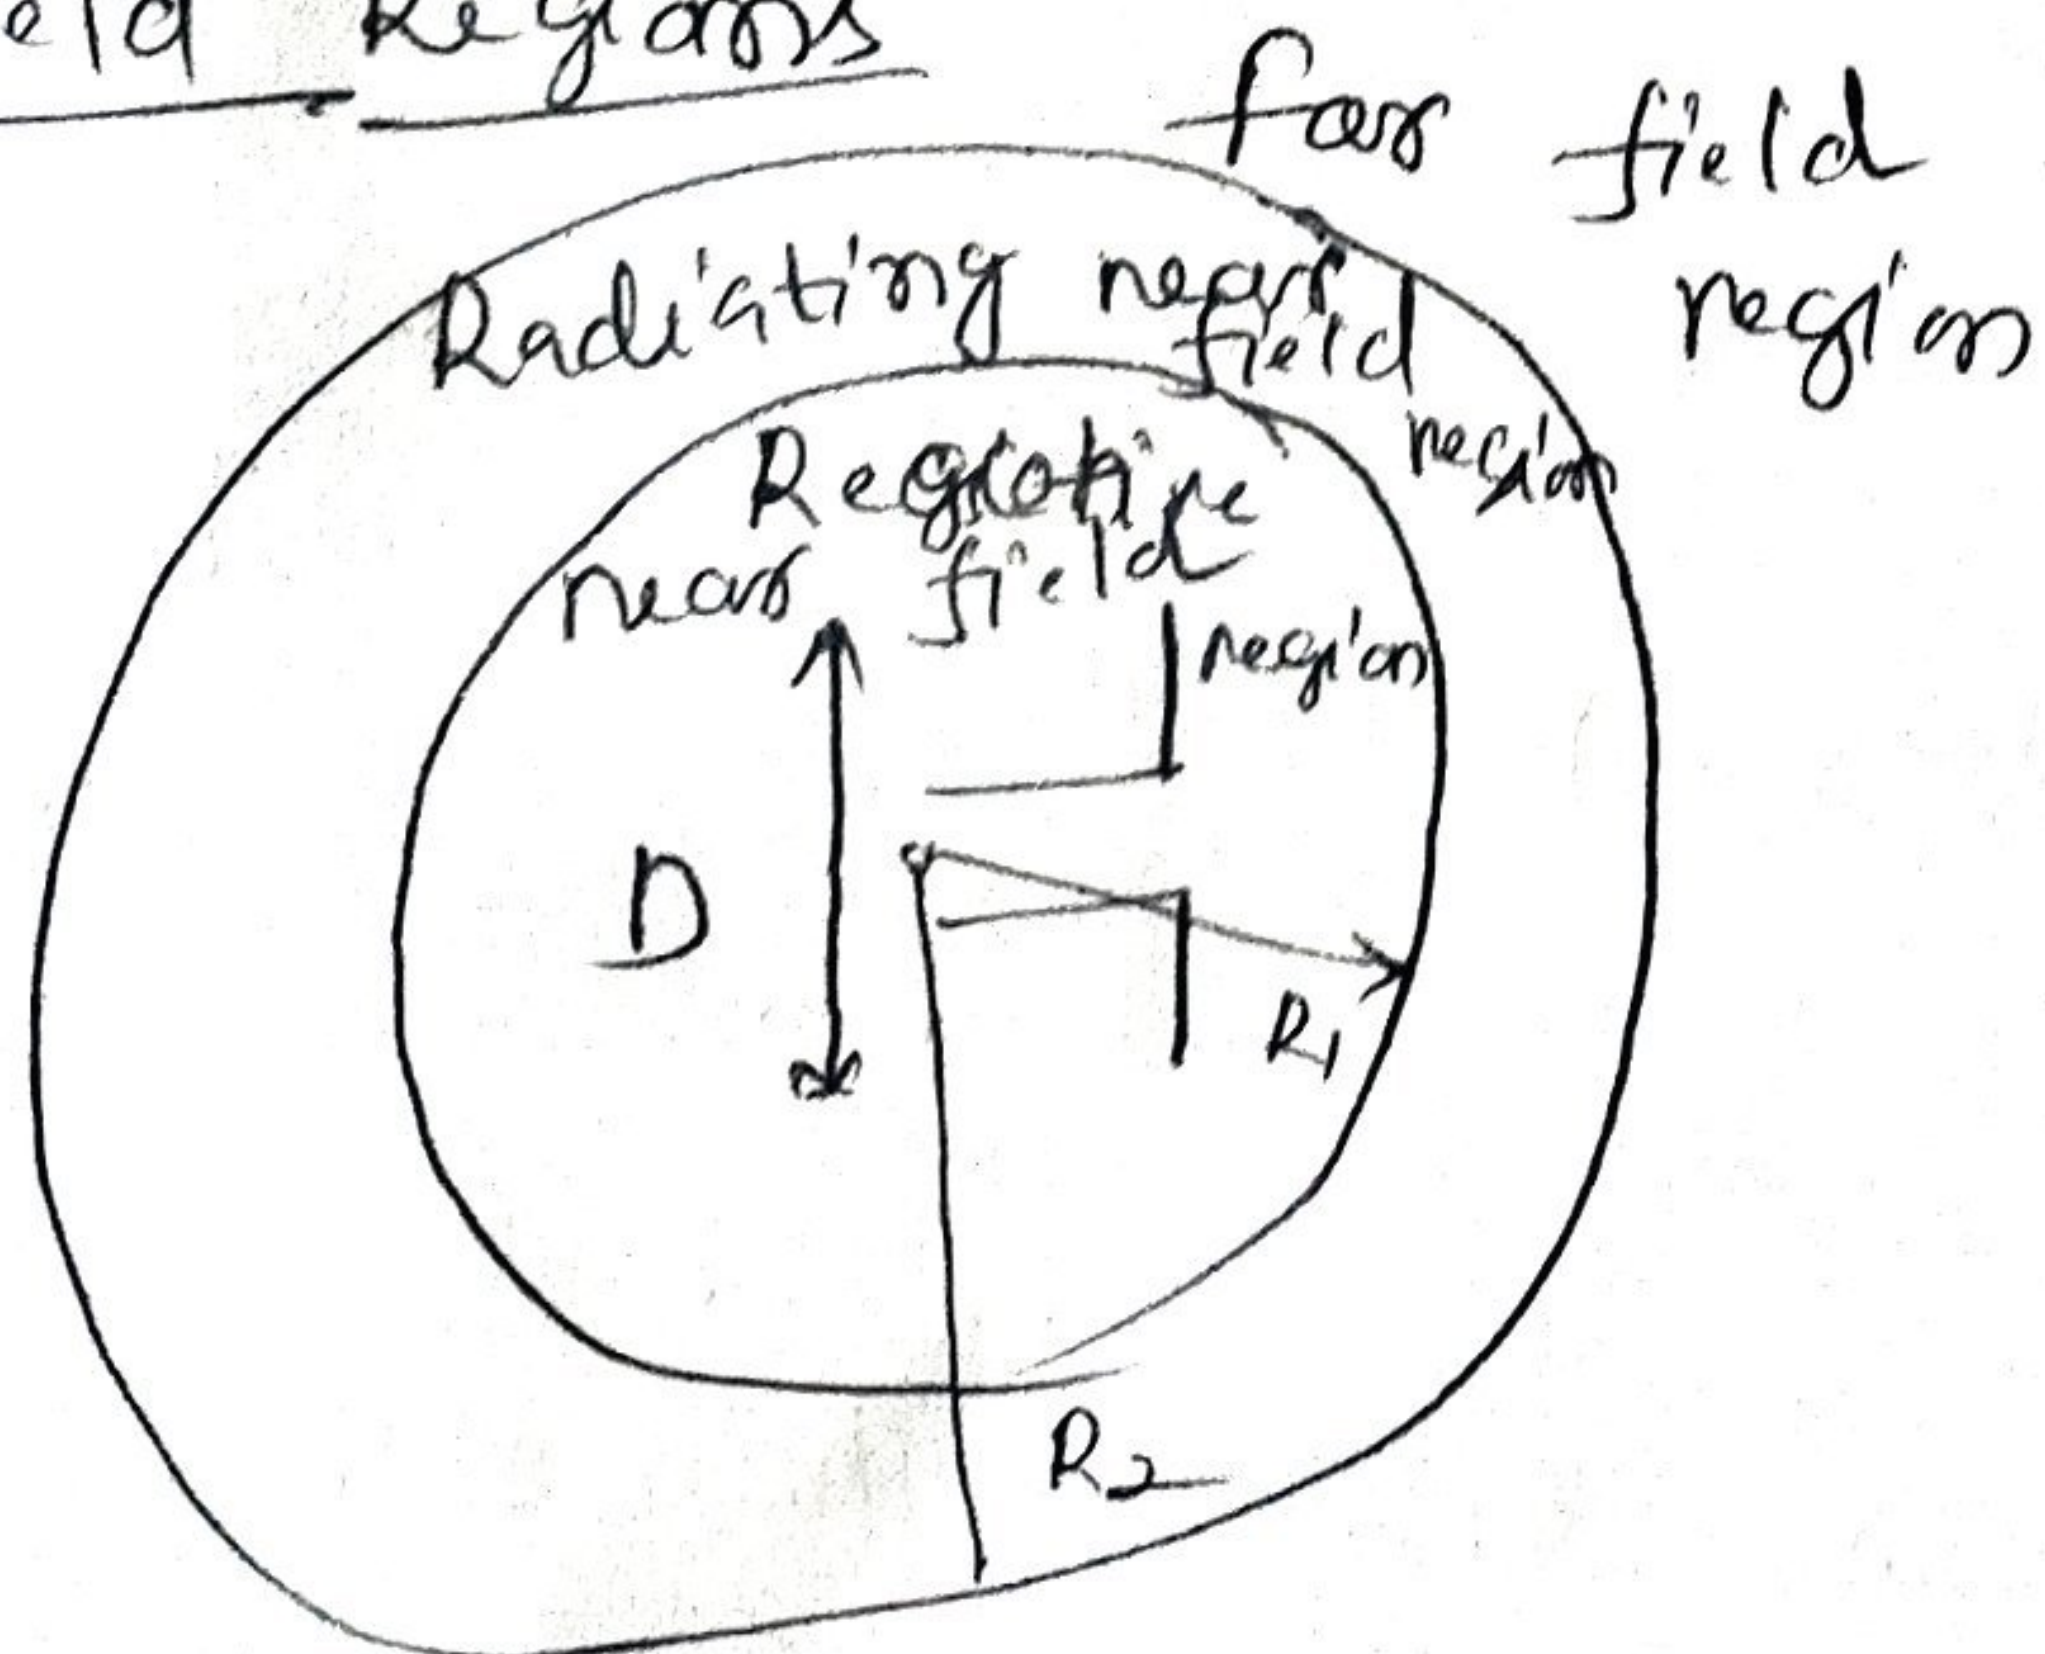 eld Regions
far field
region
Radiating near
field
region
near field
region
D
R1
R2